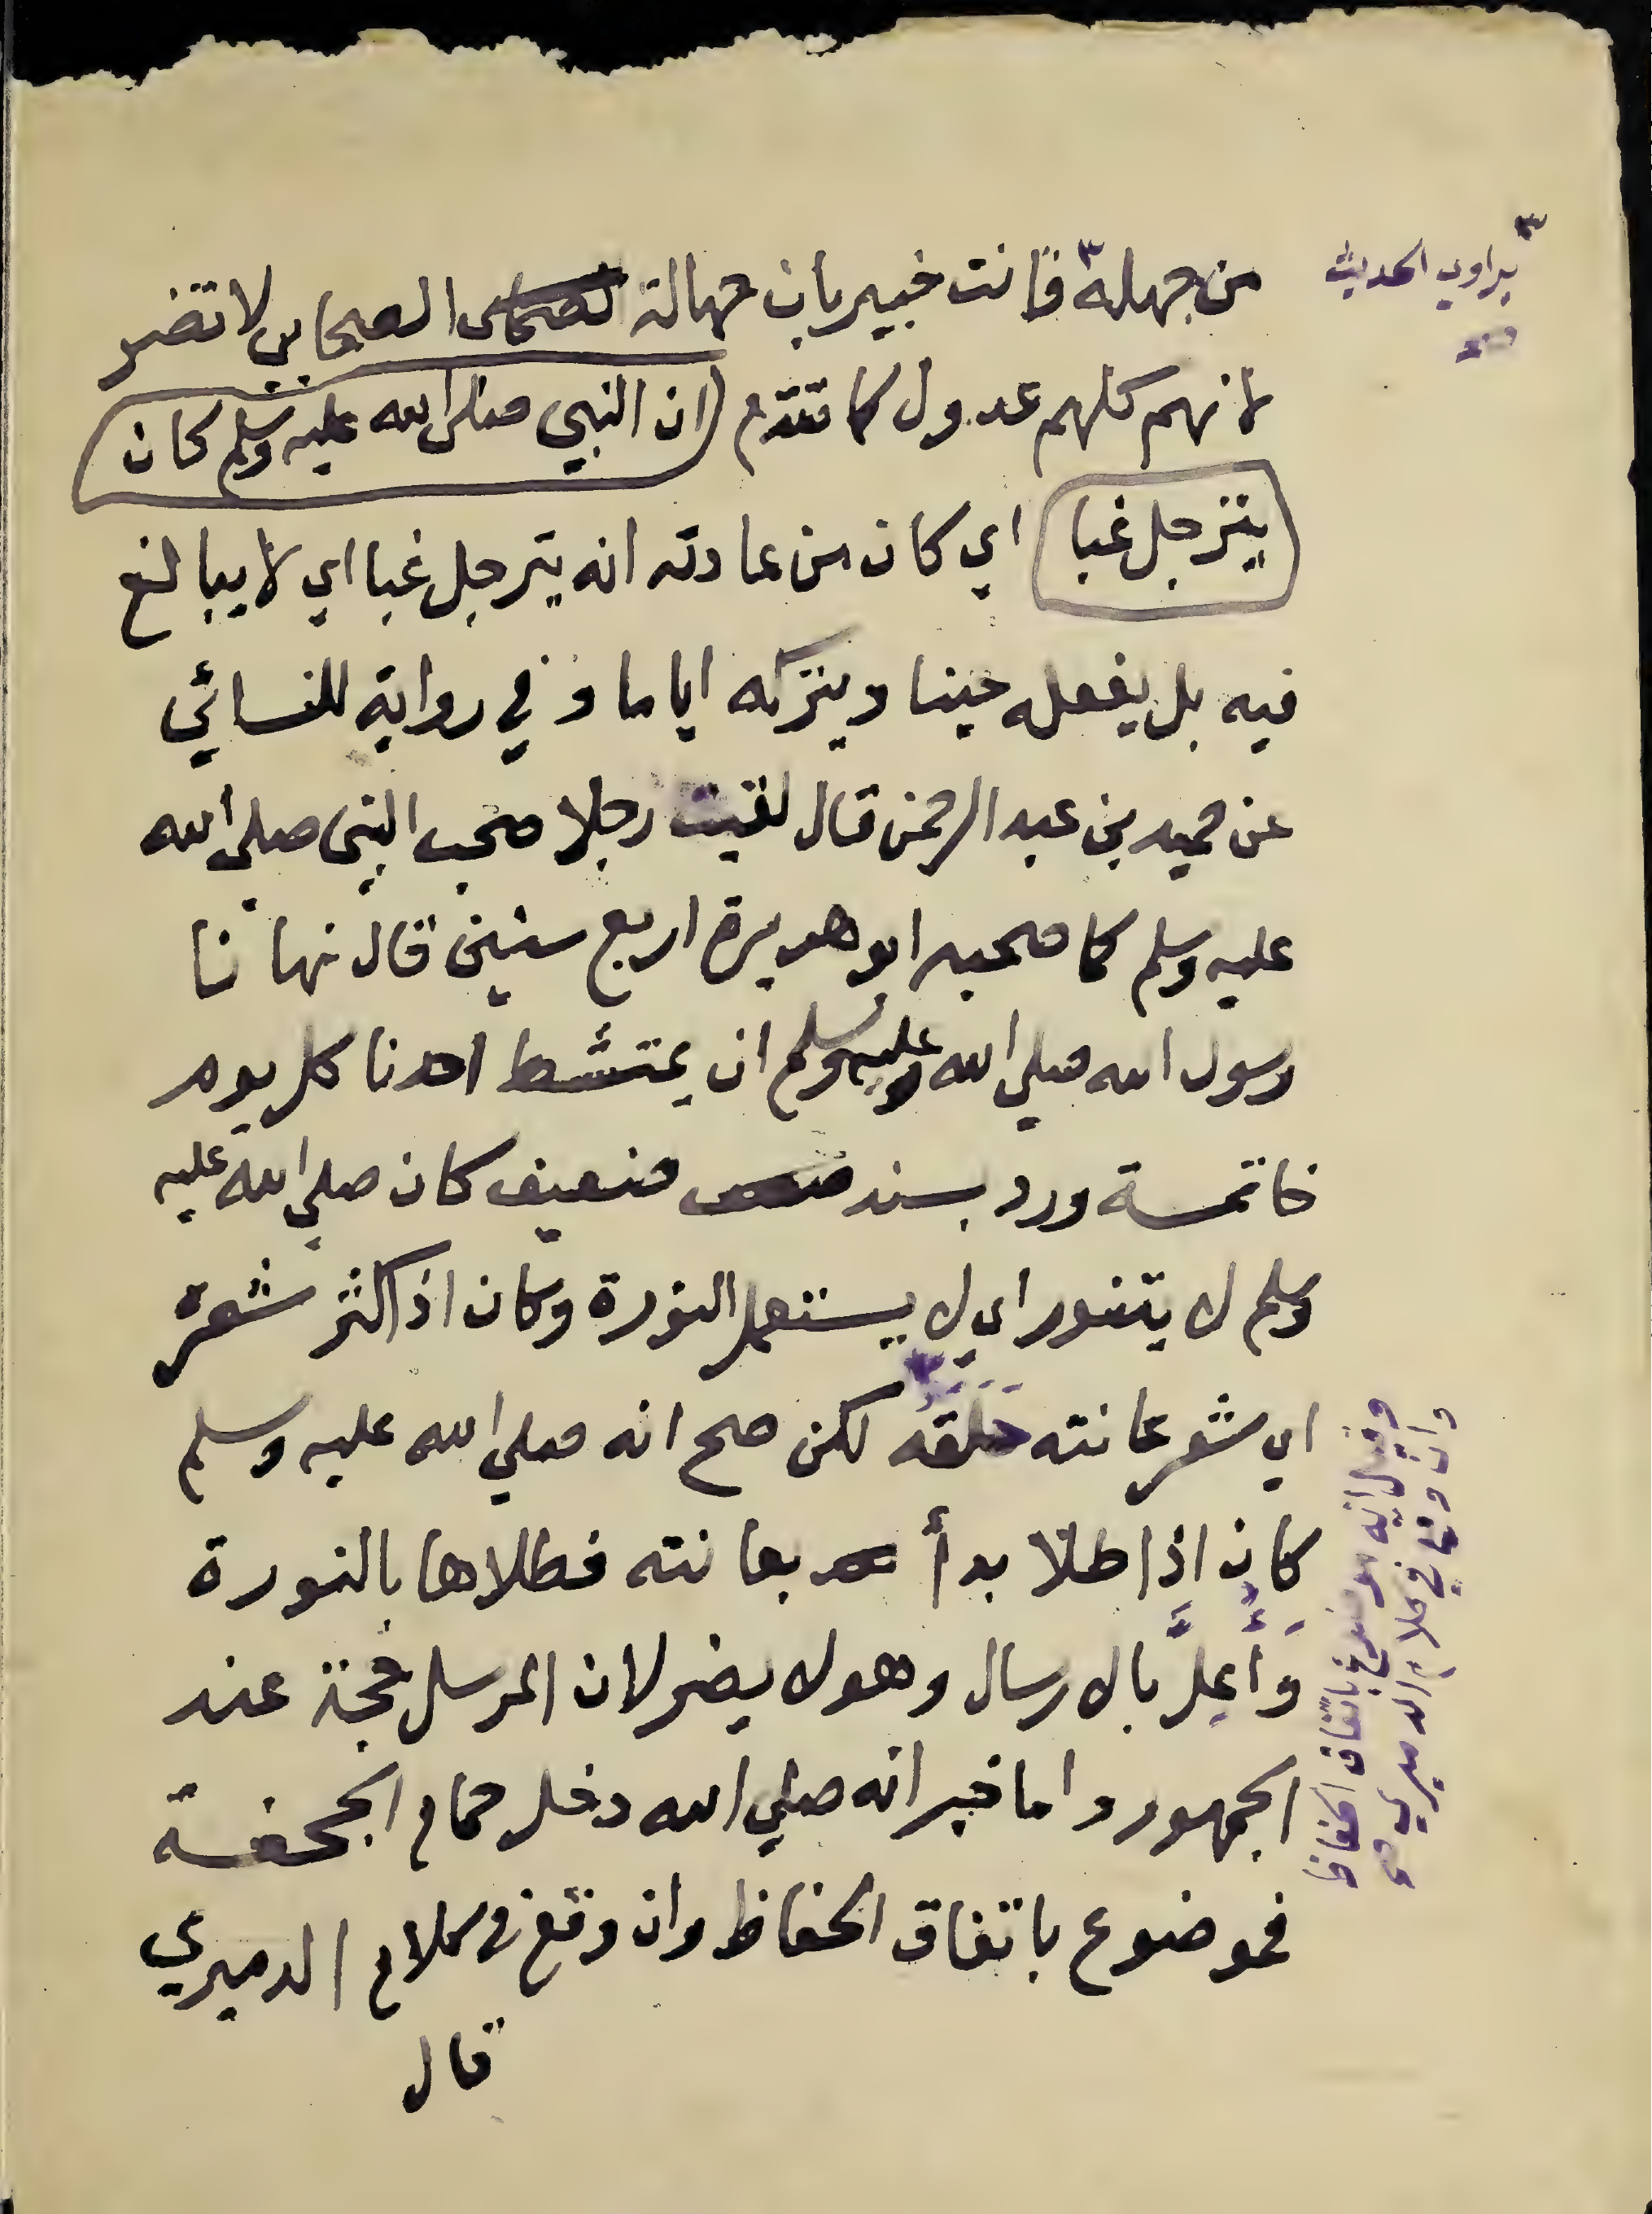 من جهله فانت خبير بان جهالة الصحابي لا تضر
لانهم كلهم عدول كما تقدم (ان النبي صلى الله عليه وسلم كان
يترجل غبا) اي كان من عادته انه يترجل غبا اي لا يبالغ
فيه بل يفعله حينا ويتركه اياما و في رواية للنسائي
عن حميد بن عبد الرحمن قال لقيت رجلا صحب النبي صلي الله
عليه وسلم كما صحبه ابو هريرة اربع سنين قال نهانا
رسول الله صلي الله عليه وسلم ان يمتشط احدنا كل يوم
خاتمة ورد بسند ضعيف كان صلي الله عليه
وسلم لا يتنور اي لا يستعمل النورة وكان اذا كثر شعره
اي شعر عانته حلقه لكن صح انه صلي الله عليه وسلم
كان اذا طلا بدأ بعانته فطلاها بالنورة
وأعل بالارسال وهو لا يضر لان المرسل حجة عند
الجمهور واما خبر انه صلي الله دخل حمام الجحفة
فموضوع باتفاق الحفاظ وان وقع في كلام الدميري
قال
براوي الحديث
باتفاق الحفاظ
وان وقع في كلام الدميري